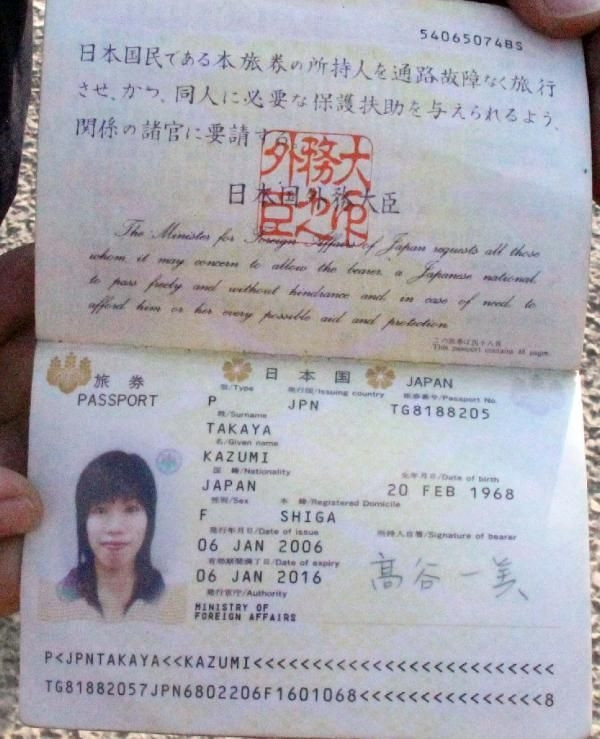 54065074BS
日本国民である本旅券の所持人を通路故障なく旅行
させ、かつ、同人に必要な保護扶助を与えられるよう、
関係の諸官に要請する。
外務大臣
日本国外務大臣
The Minister for Foreign Affairs of Japan requests all those
whom it may concern to allow the bearer, a Japanese national,
to pass freely and without hindrance and, in case of need, to
afford him or her every possible aid and protection.
この旅券は四十八頁
This passport contains 48 pages.
旅券 日本国 JAPAN
PASSPORT
型/Type 発行国/Issuing country 旅券番号/Passport No.
P JPN TG8188205
姓/Surname
TAKAYA
名/Given name
KAZUMI
国籍/Nationality 生年月日/Date of birth
JAPAN 20 FEB 1968
性別/Sex 本籍/Registered Domicile
F SHIGA
発行年月日/Date of issue 所持人自署/Signature of bearer
06 JAN 2006
有効期間満了日/Date of expiry
06 JAN 2016 髙谷一美
発行官庁/Authority
MINISTRY OF
FOREIGN AFFAIRS
P<JPNTAKAYA<<KAZUMI<<<<<<<<<<<<<<<<<<<<<<<<<
TG81882057JPN6802206F1601068<<<<<<<<<<<<<<<8